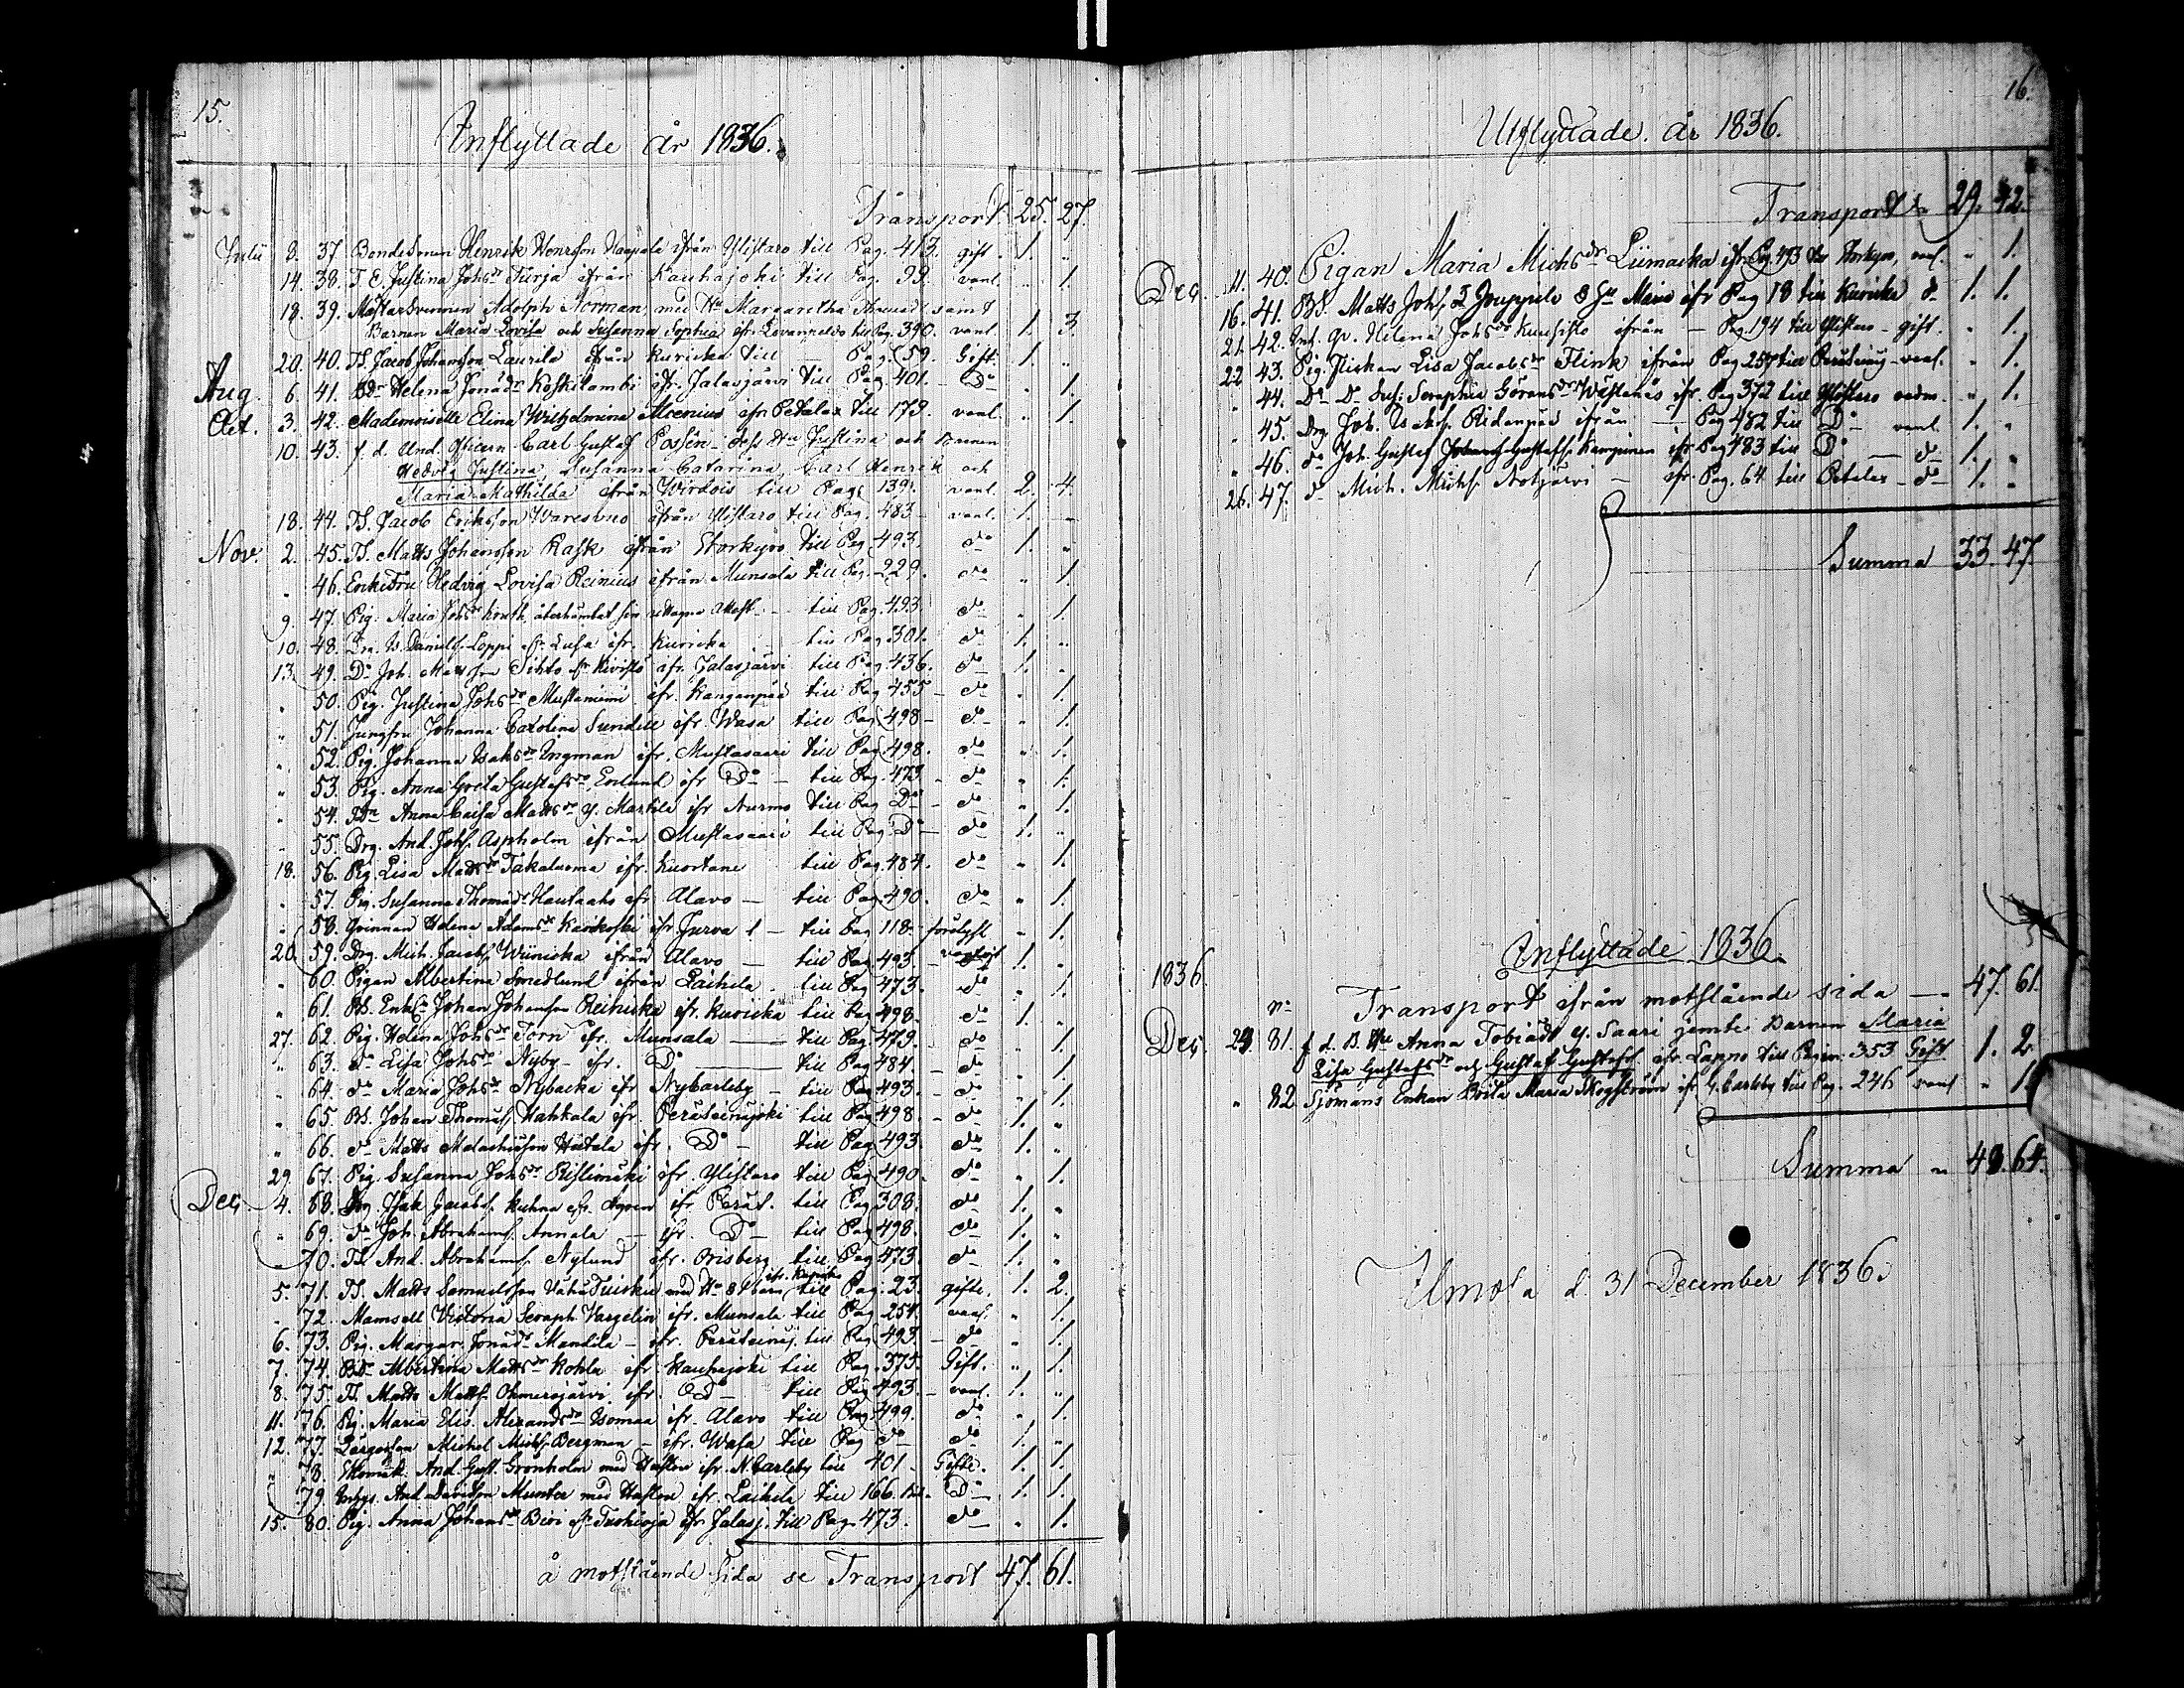 15.
Inflyttade år 1836.
Transport. 25. 27.
Julii 8. 37. Bondesonen Henrik Henrsson Haapala ifrån Ylistaro till Pag. 413. gift. 1. "
14. 38. T. E. Justina Johsdr Turja ifrån Kauhajoki till Pag. 99. vanl. " 1.
18. 39. Mästarsvennen Adolph Norman med Hu Margaretha Thomædr samt
Barnen Maria Lovisa och Susanna Sophia ifr. till Pag. 390. vanl. 1. 3.
20. 40. TS. Jacob Johansson Laurila ifrån Kuricka till Pag. 59. Gift. 1. "
Aug. 6. 41. BDr Helena Jonædr Koskilambi ifr. Jalasjärvi till Pag. 401. Do " 1.
Oct. 3. 42. Mademoiselle Elina Wilhelmina Alcenius ifr. Petalax till 179. vanl. " 1.
10. 43. f. d. Und. Officern Carl Gustaf Possén dess Hu Justina och Barnen
Hedvig Justina, Susanna Catarina, Carl Henrik och
Maria Mathilda ifrån Wirdois till Pag. 139. vanl. 2. 4.
18. 44. TS. Jacob Eriksson Waresbro ifrån Ylistaro till Pag. 483 vanl. 1. "
Nov. 2. 45. TS. Matts Johansson Rask ifrån Storkyro till Pag. 493. do 1. "
" 46. Enkefru Hedvig Lovisa Reinius ifrån Munsala till Pag. 229. do " 1.
9. 47. Pig. Maria Johsdr återhämtat sin uttagna attest till Pag. 493. do " 1.
10. 48. Drg. Is. Daniels. Loppi ifr. Kuricka till Pag. 301. do 1. "
13. 49. Do Joh. Mattsson Sihto ifr. Jalasjärvi till Pag. 436. do 1. "
" 50. Pig. Justina Johsdr Mustaniemi ifr. Kangenpää till Pag. 455 do " 1.
" 51. Jungfru Johanna Carolina Sundell ifr. Wasa till Pag. 498 do " 1.
" 52. Pig. Johanna Isaksdr Ingman ifr. Mustasaari till Pag. 498. do " 1.
" 53. Pig. Anna Greta Gustafsdr Enlund ifr. Do till Pag. 473 do " 1.
" 54. Do Anna Caisa Mattsdr Y. Martila ifr. Nurmo till Pag. Do do " 1.
" 55. Drg. And. Johs. Aspholm ifrån Mustasaari till Pag. Do do 1. "
18. 56. Pig. Lisa Mattsdr Takaluoma ifr. Kuortane till Pag. 484. do " 1.
" 57. Pig. Susanna Thomædr Hautaaho ifr. Alavo till Pag. 490. do " 1.
" 58. Qvinnan Helena Adamsdr Karikoski ifr. Jurva till Pag. 118. " 1.
20. 59. Drg. Mich. Jacobs. Wiinicka ifrån Alavo till Pag. 493 1. "
" 60. Pigan Albertina Smedlund ifrån Laihela till Pag. 473. do " 1.
" 61. BS. Enkl. Johan Johansson Reinicka ifr. Kuricka till Pag. 498. do 1. "
27. 62. Pig. Helena Johsdr Torn ifr. Munsala till Pag. 479. do " 1.
" 63. do Lisa Johsdr Nyby ifr. Do till Pag. 484. do " 1.
" 64. do Maria Johsdr Nybacka ifr. Nykarleby till Pag. 493. do " 1.
" 65. BS. Johan Thomæs. Hahkala ifr. Peräseinäjoki till Pag. 498 do 1. "
" 66. do Matts Malachiasson Hietala ifr. Do till Pag. 493 do 1. "
29. 67. Pig. Susanna Johsdr Ristimäki ifr. Ylistaro till Pag. 490. do " 1.
Dec. 4. 68. Drg. Isak Jacobs. Kuhna ifr. Peräs. till Pag. 308. do 1. "
" 69. do Joh. Abrahams. Annala ifr. Do till Pag. 498. do 1. "
" 70. TS. And. Abrahams. Nylund ifr. Orisberg till Pag. 473. do 1. "
5. 71. TS. Matts Samuelsson med Hu & Barn till Pag. 23. gifte. 1. 2.
" 72. Mamsell Victoria Seraph. Vargelin ifr. Munsala till Pag. 254. vanl. " 1.
6. 73. Pig. Margar. Jonædr Mantila ifr. Peräseinäj. till Pag. 493. do " 1.
7. 74. BDr Albertina Mattsdr Kohla ifr. Kauhajoki till Pag. 375. Gift. " 1.
8. 75. TS. Matts Matts. Ohmerojärvi ifr. Do till Pag. 493. vanl. 1. "
11. 76. Pig. Maria Elis. Alexandsdr Isomaa ifr. Alavo till Pag. 499. do " 1.
12. 77. Michel Michs. Bergman ifr. Wasa till Pag. do do 1. "
" 78. Skomak. And. Gust. Grönholm med Hustru ifr. N Carleby till 401. Gifte. 1. 1.
" 79. Inhys. And. Davidson Munter med Hustru ifr. Laihela till 166. Do 1. 1.
15. 80. Pig. Anna Johansdr ifr. Jalasj. till Pag. 473. do " 1.
å motstående sida se Transport 47. 61.
16.
Utflyttade år 1836.
Transport 29. 42.
Dec. 11. 40. Pigan Maria Michsdr Liimacka ifr. Pag. 493 till Storkyro, vanl. " 1.
16. 41. BS. Matts Johs. Jouppila & Hu Maria ifr. Pag. 18 till Kuricka do 1. 1.
21. 42. Inh. Qv. Helena Johsdr Kuusisto ifrån Pag. 194 till Ylistaro gift. " 1.
22 43. Pig. Flickan Lisa Jacobsdr Flink ifrån Pag. 257 till vanl. " 1.
" 44. Do Do Sus: Seraphia Göransdr Westenäs ifr. Pag. 372 till Ylistaro " 1.
" 45. Drg. Joh. Isaks. Ridanpää ifrån Pag. 482 till Do vanl. 1. "
" 46. do Joh. Gustaf Gustafs. Kampinen ifr. Pag. 483 till Do do 1. "
26. 47. do Mich. Michs. Notjärvi ifr. Pag. 64 till Petalax do 1. "
Summa 33. 47.
Inflyttade 1836.
1836.
no Transport ifrån motstående sida 47. 61.
Dec. 29. 81. f. d. B. Hu Anna Tobiædr Y. Saari jemte Barnen Maria
Lisa Gustafsdr och Gustaf Gustafsson ifr. Lappo till Pag. 353 Gift 1. 2.
" 82. Sjömans Enkan Brita Maria Skogström ifr. G. Carleby till Pag. 246 vanl. " 1.
Summa 48. 64.
Ilmola d. 31 December 1836.